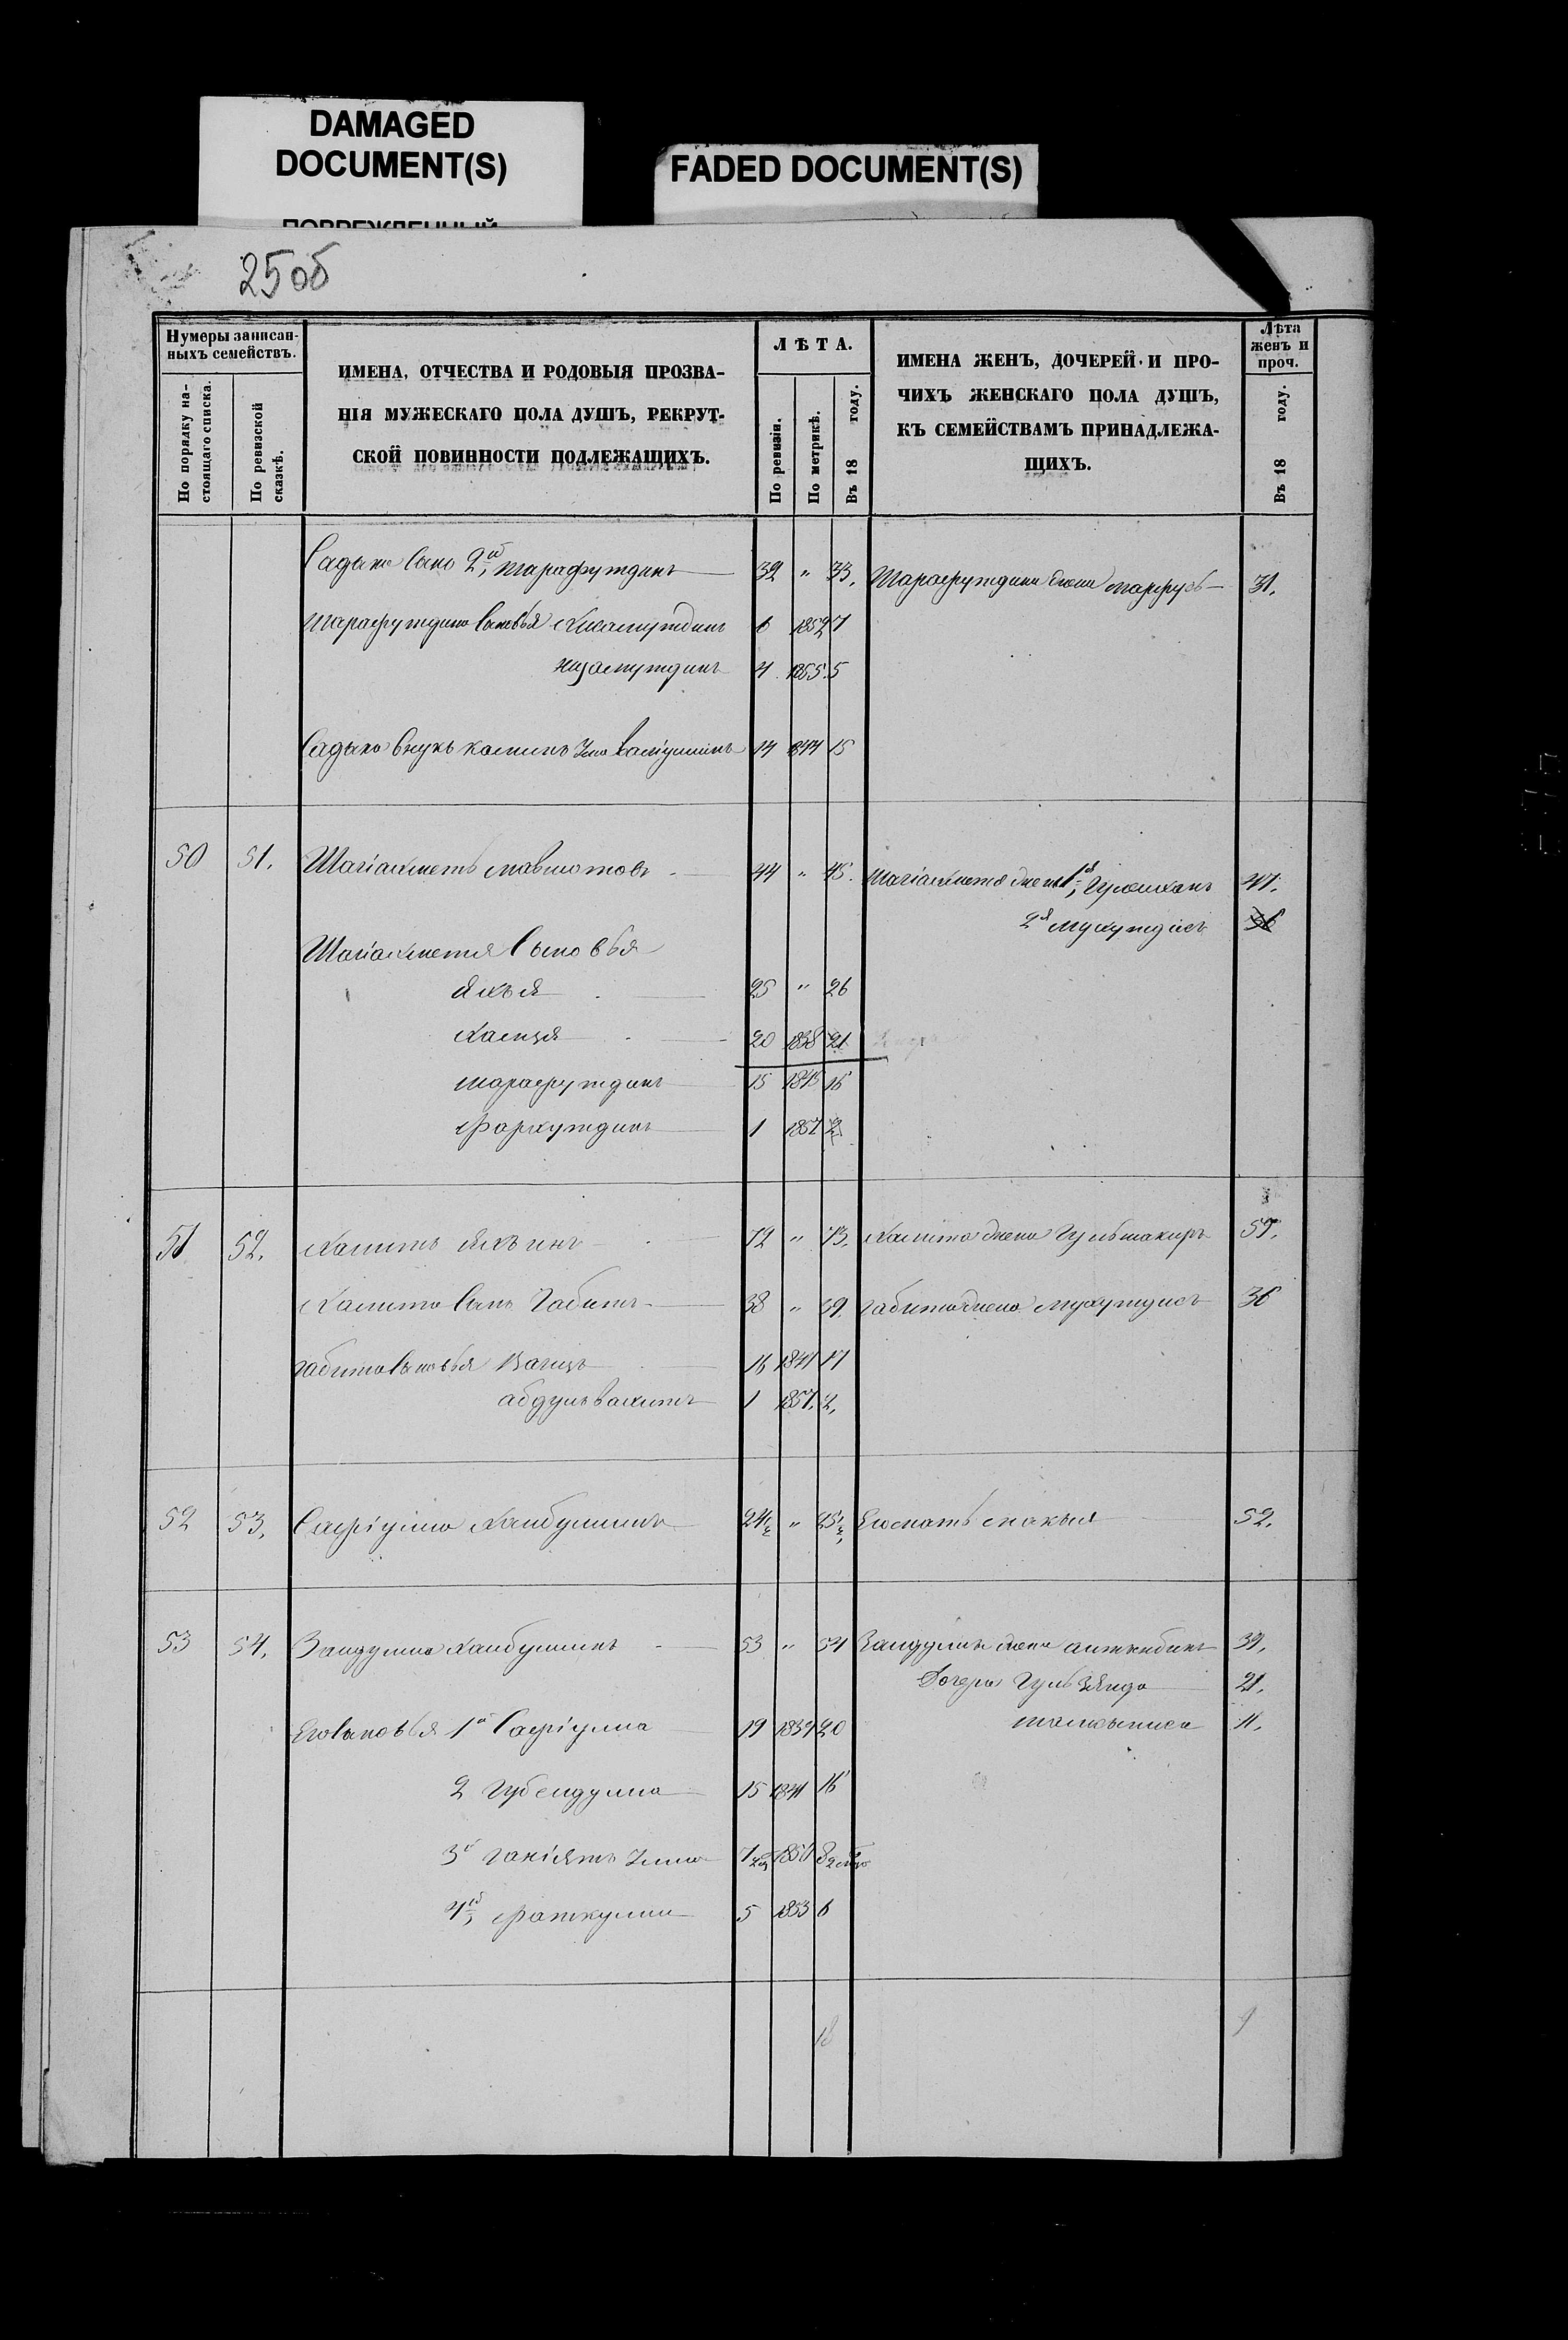 DAMAGED
DOCUMENT(S)
FADED DOCUMENT(S)
25об
Нумеры записан-
ныхъ семействъ.
По порядку на-
стоящаго списка.
По ревизской
сказкѣ.
ИМЕНА, ОТЧЕСТВА И РОДОВЫЯ ПРОЗВА-
НІЯ МУЖЕСКАГО ПОЛА ДУШЪ, РЕКРУТ-
СКОЙ ПОВИННОСТИ ПОДЛЕЖАЩИХЪ.
ЛѢТА.
По ревизіи.
По метрикѣ.
Въ 18 году.
ИМЕНА ЖЕНЪ, ДОЧЕРЕЙ И ПРО-
ЧИХЪ ЖЕНСКАГО ПОЛА ДУШЪ,
КЪ СЕМЕЙСТВАМЪ ПРИНАДЛЕЖА-
ЩИХЪ.
Лѣта
женъ и
проч.
Въ 18 году.
Садыка сынъ 2й, Шарафутдинъ 32 " 33. Шарафутдина жена 31.
Шарафутдина сыновья Хисамутдинъ 6 1852 7
Низамутдинъ 4 1855 5
Садыка внукъ 14 844 15
50 51. Шагіахметъ 44 " 45. Шагіахмета жена 1я, 47.
2я 36
Шагіахметя сыновья
Яхъя 25 " 26
Хамзя 20 1838 21
Шарафутдинъ 15 1845 16
Фархутдинъ 1 1857 2
51 52. Хамитъ Яхъинъ 72 " 73. Хамита жена 59.
Хамита сынъ Габитъ 38 " 39. Габита жена 36
Габита сыновья Вагизъ 16 1841 17
Абдулвахитъ 1 1857. 2,
52 53. Сафіулла Хаибуллинъ 24½ " 25½, Его мать 52.
53 54. Заидулла Хаибуллинъ 53 " 54 Заидуллы жена 39,
Дочери Гульзянда 21,
11,
Его сыновья 1й Сафіулла 19 1839 20
2 Губейдулла 15 1841 16
3й Ганіятъ Улла 7 1850 8
4й, Фаткулла 5 1853 6
18 9